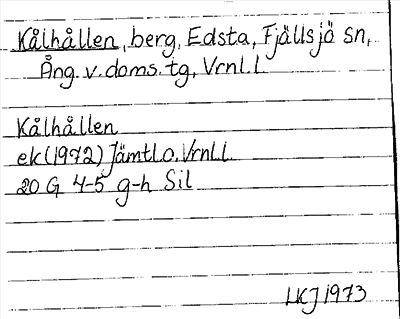 Kålhållen, berg, Edsta, Fjällsjö sn,
Ång. v. doms. tg, Vrnl. l
Kålhållen
ek (1972) Jämtl. o. Vrnl. l.
20 G 4-5 g-h Sil
LKJ 1973